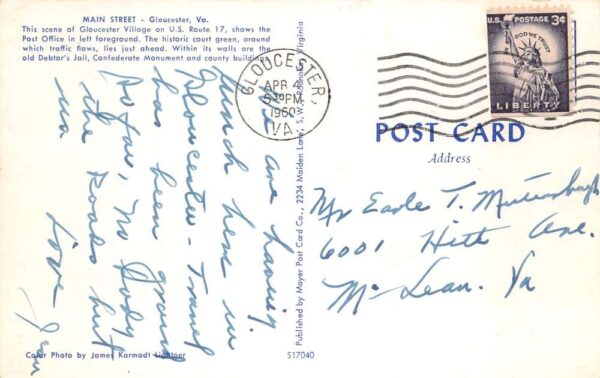 MAIN STREET - Gloucester, Va.
This scene of Gloucester Village on U.S. Route 17, shows the
Post Office in left foreground. The historic court green, around
which traffic flows, lies just ahead. Within its walls are the
old Debtor's Jail, Confederate Monument and county buildings.
We are having
lunch here in
Gloucester - Travel
has been grand
so far, No body
the Roads but
us
Love
Color Photo by James Karmodt Lightner
S17040
Published by Mayer Post Card Co., 2234 Maiden Lane, S.W., Roanoke, Virginia
GLOUCESTER,
APR 4
5 30 PM
1960
VA.
U.S. POSTAGE 3¢
IN GOD WE TRUST
LIBERTY
POST CARD
Address
Mr Earle T.
6001 Hitt Ave.
McLean. Va